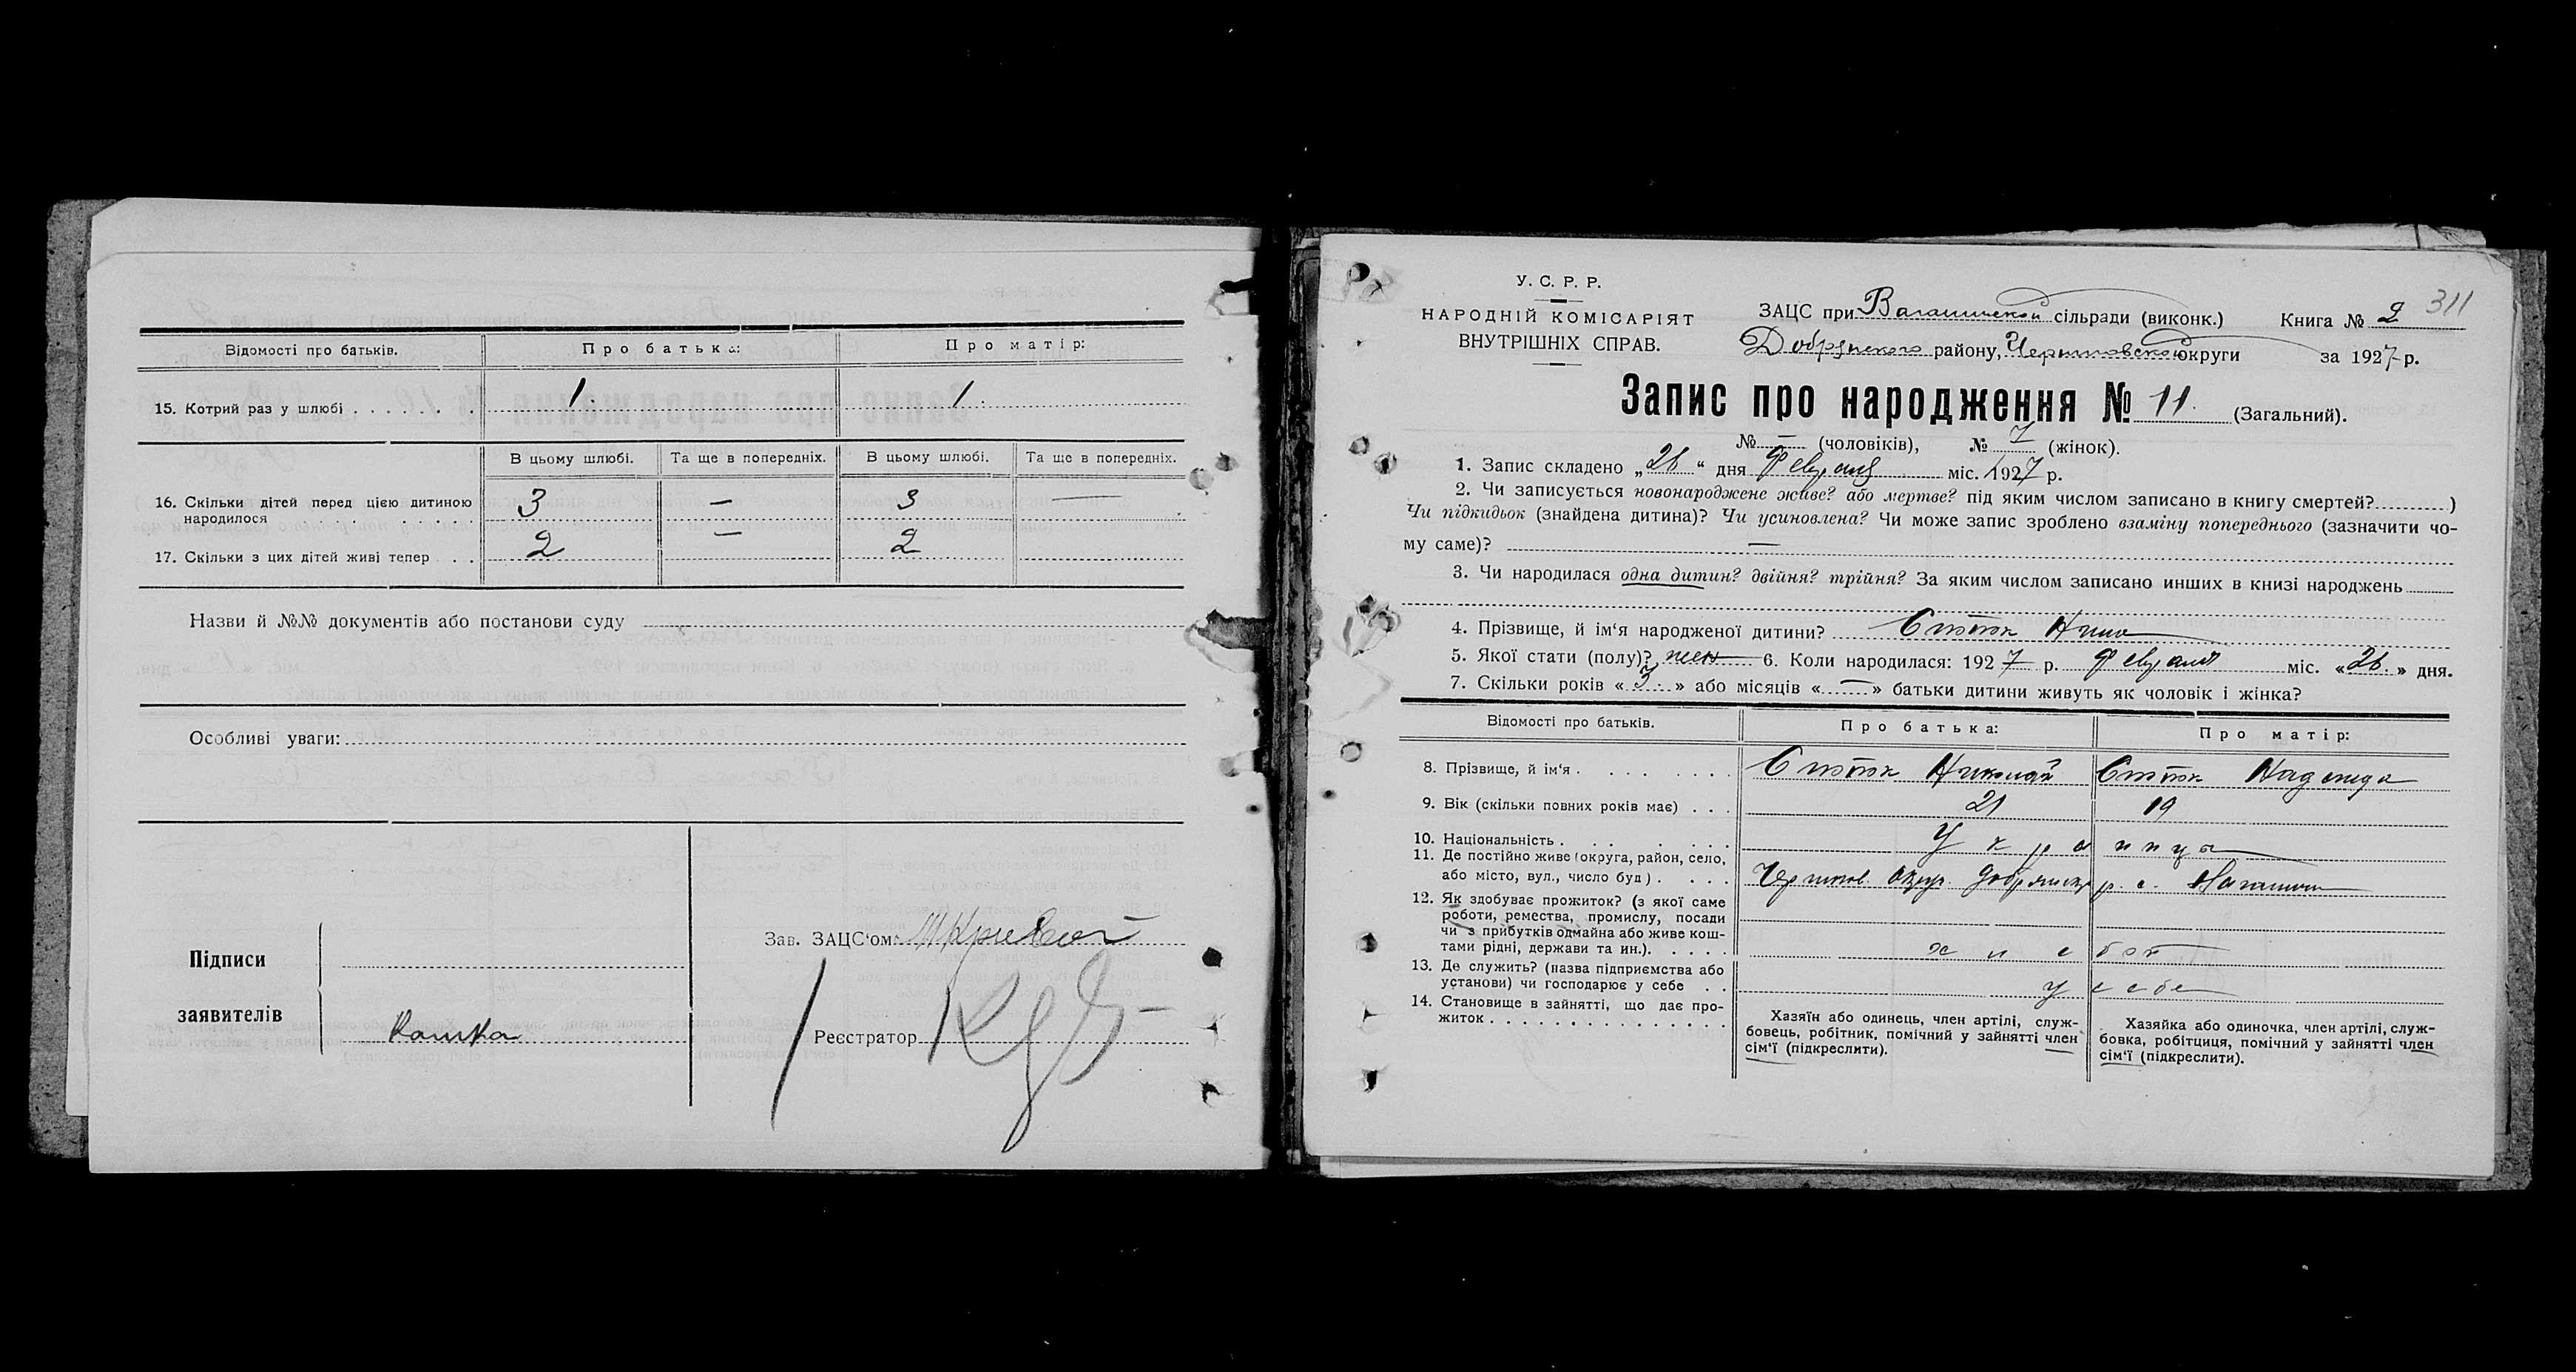 Відомості про батьків.
Про батька:
Про матір:
15. Котрий раз у шлюбі . . . . . . .
1
1
В цьому шлюбі.
Та ще в попередніх.
В цьому шлюбі.
Та ще в попередніх.
16. Скільки дітей перед цією дитиною
народилося . . . . . . . .
3
—
3
—
17. Скільки з цих дітей живі тепер . . .
2
—
2
Назви й №№ документів або постанови суду
Особливі уваги:
Підписи
заявителів
Кашка
Зав. ЗАЦС'ом:
Реєстратор
У. С. Р. Р.
НАРОДНІЙ КОМІСАРІЯТ
ВНУТРІШНІХ СПРАВ.
ЗАЦС при сільради (виконк.)
Книга № 2
311
Добрянского району, Черниговской округи
за 1927 р.
Запис про народження № 11. (Загальний).
№ — (чоловіків), № 7 (жінок).
1. Запис складено „26“ дня Февраля міс. 1927 р.
2. Чи записується новонароджене живе? або мертве? під яким числом записано в книгу смертей?..........)
Чи підкидьок (знайдена дитина)? Чи усиновлена? Чи може запис зроблено взаміну попереднього (зазначити чо-
му саме)? —
3. Чи народилася одна дитин? двійня? трійня? За яким числом записано инших в книзі народжень
4. Прізвище, й ім‘я народженої дитини? Нина
5. Якої стати (полу)? жен 6. Коли народилася: 1927 р. Февраля міс. «26.» дня.
7. Скільки років «3.» або місяців «—» батьки дитини живуть як чоловік і жінка?
Відомості про батьків.
Про батька:
Про матір:
8. Прізвище, й ім‘я . . . . . . .
Николай
Надежда
9. Вік (скільки повних років має) . . .
21
19
10. Національність . . . . . . .
Украинца
11. Де постійно живе (округа, район, село,
або місто, вул., число буд) . . . .
Чернигов. округ. Добрянск р. с.
12. Як здобуває прожиток? (з якої саме
роботи, ремества, промислу, посади
чи з прибутків одмайна або живе кош-
тами рідні, держави та ин.). . . . .
хлебоп
13. Де служить? (назва підприємства або
установи) чи господарює у себе . .
у себе
14. Становище в зайнятті, що дає про-
житок . . . . . . . . . . . . . . .
Хазяїн або одинець, член артілі, служ-
бовець, робітник, помічний у зайнятті член
сім‘ї (підкреслити).
Хазяйка або одиночка, член артілі, служ-
бовка, робітциця, помічний у зайнятті член
сім‘ї (підкреслити).